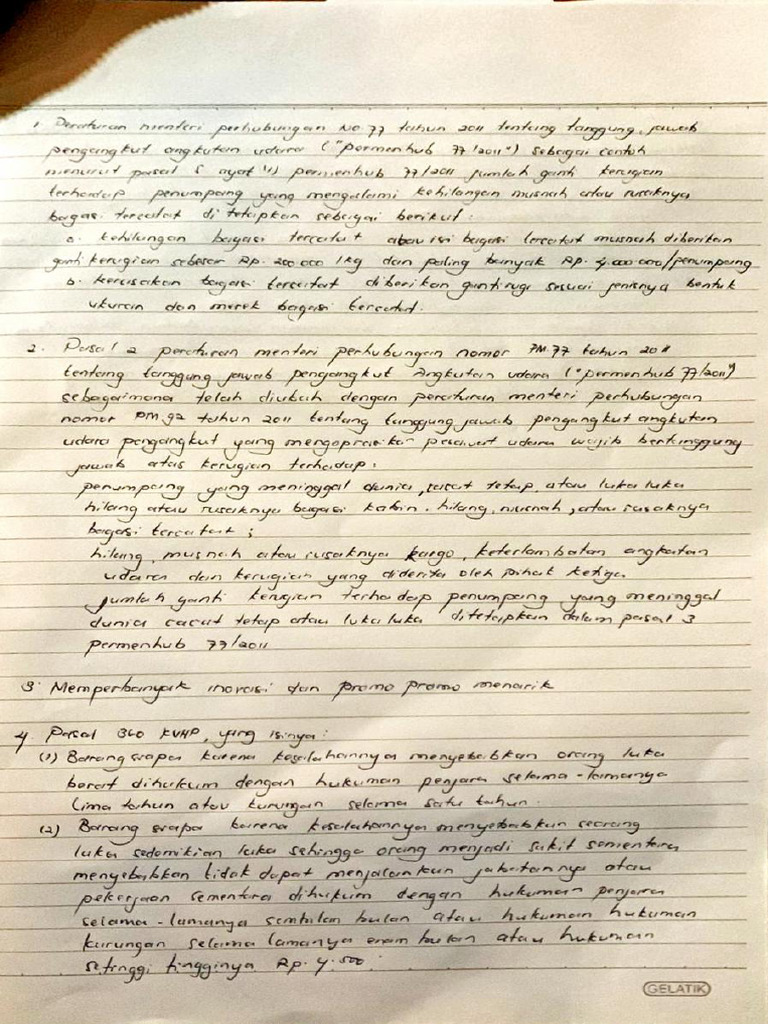 1. Peraturan menteri perhubungan No. 77 tahun 2011 tentang tanggung jawab
pengangkut angkutan udara ("permenhub 77/2011") sebagai contoh
menurut pasal 5 ayat (1) permenhub 77/2011 jumlah ganti kerugian
terhadap penumpang yang mengalami kehilangan musnah atau rusaknya
bagasi tercatat di tetapkan sebagai berikut :
a. kehilangan bagasi tercatat atau isi bagasi tercatat musnah diberikan
ganti kerugian sebesar Rp. 200.000 / kg dan paling banyak Rp. 4.000.000/penumpang
b. kerusakan bagasi tercatat diberikan ganti rugi sesuai jenisnya bentuk
ukuran dan merek bagasi tercatat.
2. Pasal 2 peraturan menteri perhubungan nomor PM.77 tahun 2011
tentang tanggung jawab pengangkut Angkutan udara ("permenhub 77/2011")
sebagaimana telah diubah dengan peraturan menteri perhubungan
nomor PM.92 tahun 2011 tentang tanggung jawab pengangkut angkutan
udara pengangkut yang mengoprasikan pesawat udara wajib bertanggung
jawab atas kerugian terhadap :
penumpang yang meninggal dunia, cacat tetap, atau luka luka
hilang atau rusaknya bagasi kabin. hilang, musnah, atau rusaknya
bagasi tercatat ;
hilang, musnah atau rusaknya kargo, keterlambatan angkatan
udara dan kerugian yang diderita oleh pihak ketiga
jumlah ganti kerugian terhadap penumpang yang meninggal
dunia cacat tetap atau luka luka ditetapkan dalam pasal 3
permenhub 77/2011
3. Memperbanyak inovasi dan promo promo menarik
4. Pasal 360 KUHP, yang isinya :
(1) Barang siapa karena kesalahannya menyebabkan orang luka
berat dihukum dengan hukuman penjara selama-lamanya
lima tahun atau kurungan selama satu tahun.
(2) Barang siapa karena kesalahannya menyebabkan seorang
luka sedemikian luka sehingga orang menjadi sakit sementara
menyebabkan tidak dapat menjalankan jabatannya atau
pekerjaan sementara dihukum dengan hukuman penjara
selama-lamanya sembilan bulan atau hukuman hukuman
kurungan selama lamanya enam bulan atau hukuman
setinggi tingginya Rp. 4.500
GELATIK